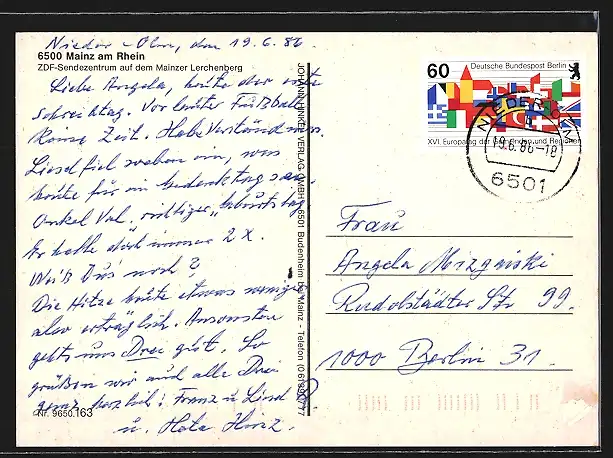 Nieder-Olm, den 19.6.86
6500 Mainz am Rhein
ZDF-Sendezentrum auf dem Mainzer Lerchenberg
Liebe Angela, heute der erste
Schreibtag. Vor lauter Fußball
keine Zeit. Habe Verständnis.
Liesel fiel soeben ein, was
heute für ein
Onkel Val. richtiger "Geburtstag.
Er hatte doch immer 2 x.
Weiß Du's noch?
Die Hitze heute etwas weniger
aber erträglich. Ansonsten
gehts uns Drei gut. So
grüßen wir auch alle Drei
ganz herzlich: Franz u. Liesel
u.
Nr. 9650.163
JOHANN VERLAG GMBH 6501 Budenheim bei Mainz - Telefon
60
Deutsche Bundespost Berlin
XVI. Europatag der Gemeinden und Regionen
NIEDER-OLM
19.6.86-18
6501
Frau
Angela
Rudolstädter Str 99.
1000 Berlin 31.